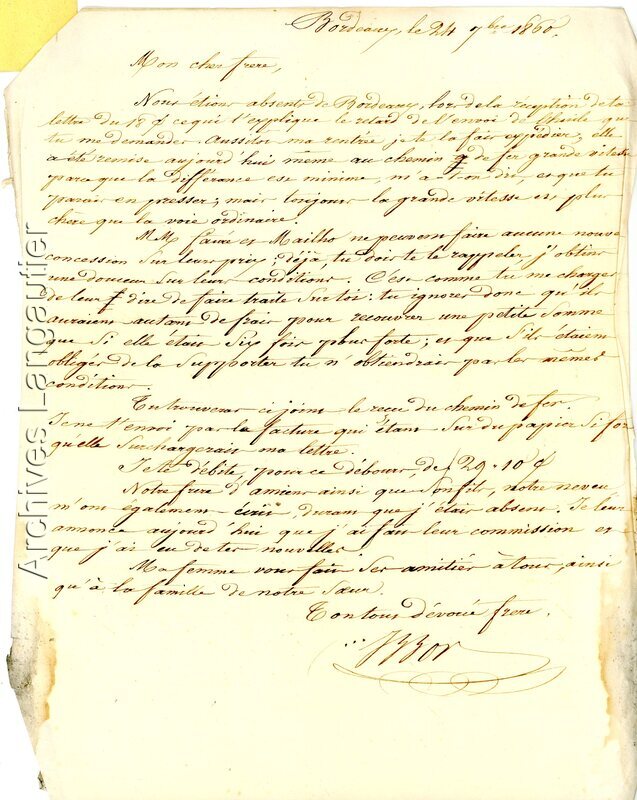 Bordeaux, le 24 7bre 1860.
Mon cher frere,
Nous étions absents de Bordeaux, lors de la réception de ta
lettre du 18 ct ce qui t'explique le retard de l'envoi de l'huile que
tu me demandes. Aussitot ma rentrée je te la fais expédier; elle
a été remise aujourd'hui même au chemin de fer grande vitesse
parce que la différance est minime, m'a-t-on dit, et que tu
parais en presser; mais toujours la grande vitesse est plus
chere que la voie ordinaire.
MM. Faure et Mailho ne peuvent faire aucune nouve
concession sur leurs prix; déjà, tu dois te le rappeler, j'obtins
une douceur sur leurs conditions. C'est comme tu me charges
de leur dire de faire traite sur toi: tu ignores donc qu'ils
auraient autant de frais pour recouvrer une petite somme
que si elle était six fois plus forte; et que s'ils étaient
obligés de la supporter tu n'obtiendrais pas les mêmes
conditions.
Tu trouveras ci joint le recu du chemin de fer.
Je ne t'envoi pas la facture qui étant sur du papier si fort
qu'elle surchargerait ma lettre.
Je te débite, pour ce débours, de f 29-10 ct
Notre frere d'amiens ainsi que son fils, notre neveu
m'ont également écrit, durant que j'étais absent. Je leur
annonce aujourd'hui que j'ai fait leur commission et
que j'ai eu de tes nouvelles.
Ma femme vous fait ses amitiés à tous, ainsi
qu'à la famille de notre Sœur.
Ton tous dévoué frere.
Archives Langautier